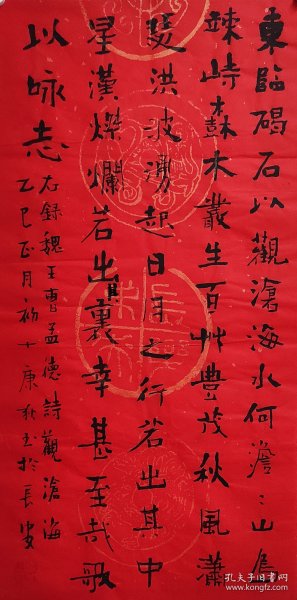 東臨碣石以觀滄海水何澹〻山島
竦峙樹木叢生百艸豐茂秋風瀟
瑟洪波湧起日月之行若出其中
星漢燦爛若出其裏幸甚至哉歌
以咏志
右錄魏王曹孟德詩觀滄海
乙巳正月初十康書於長安
孔夫子旧书网